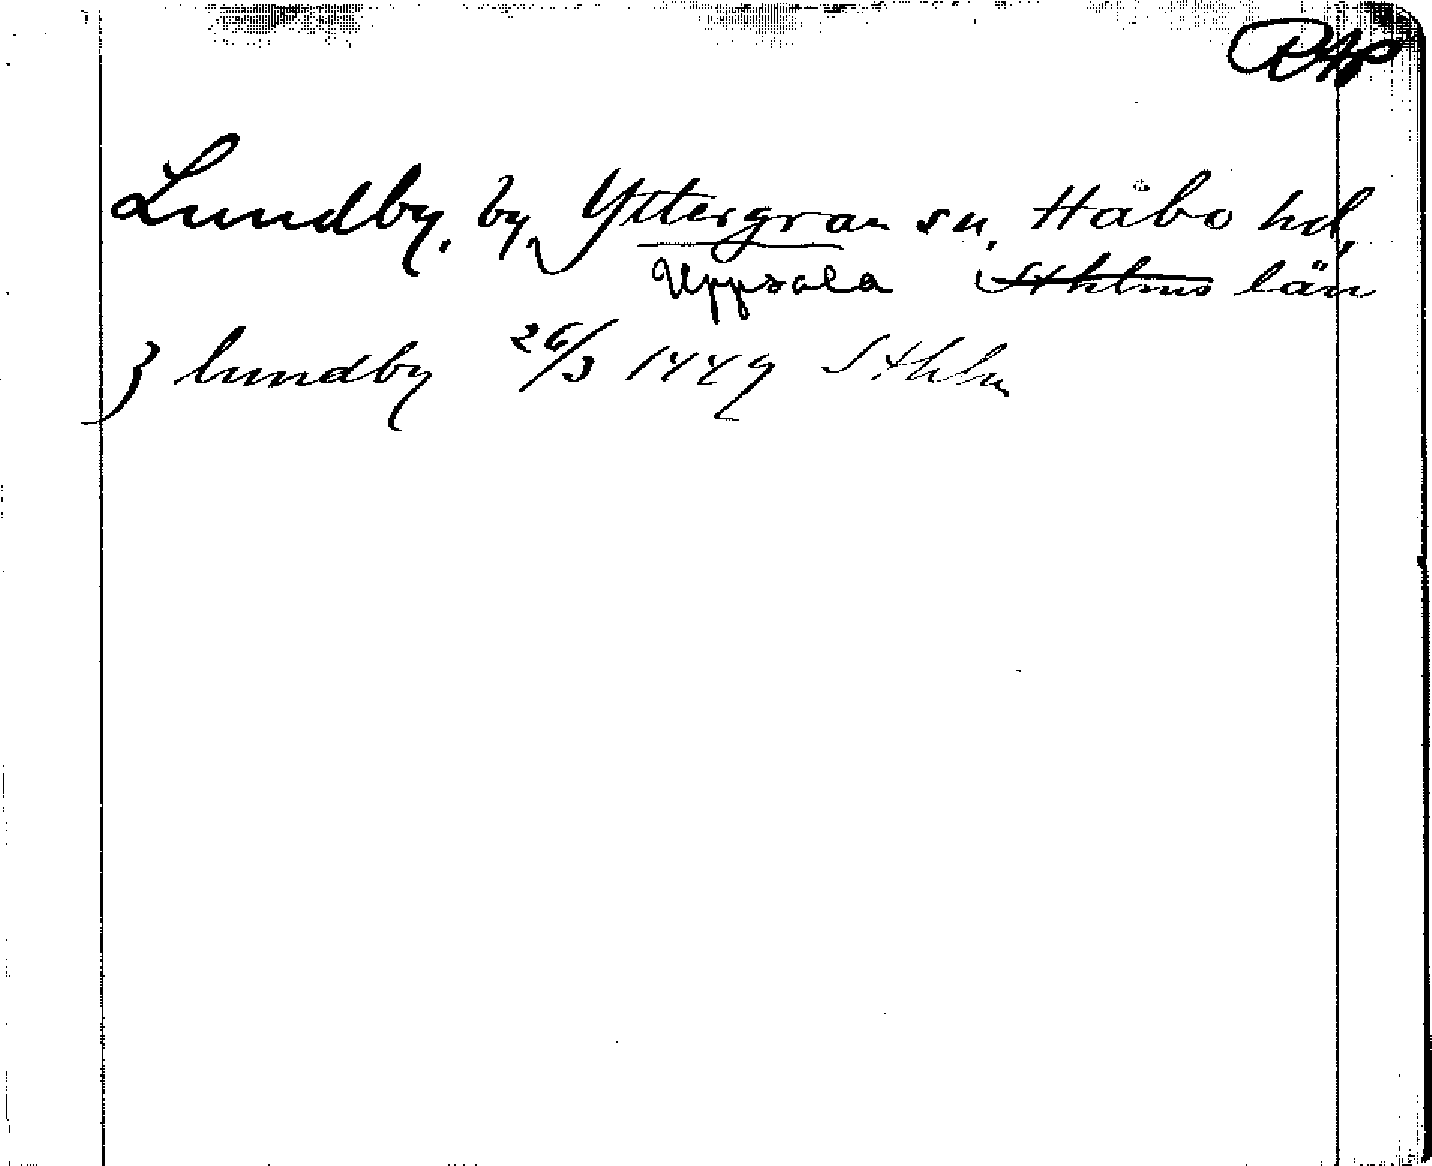 RAp
Lundby, by, Yttergran sn, Håbo hd,
Uppsala Sthlms län
j lundby 26/3 1449 Sthlm